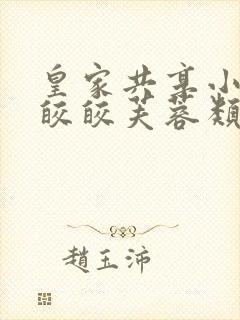 皇家共享小
皎皎芙蓉類
趙玉沛